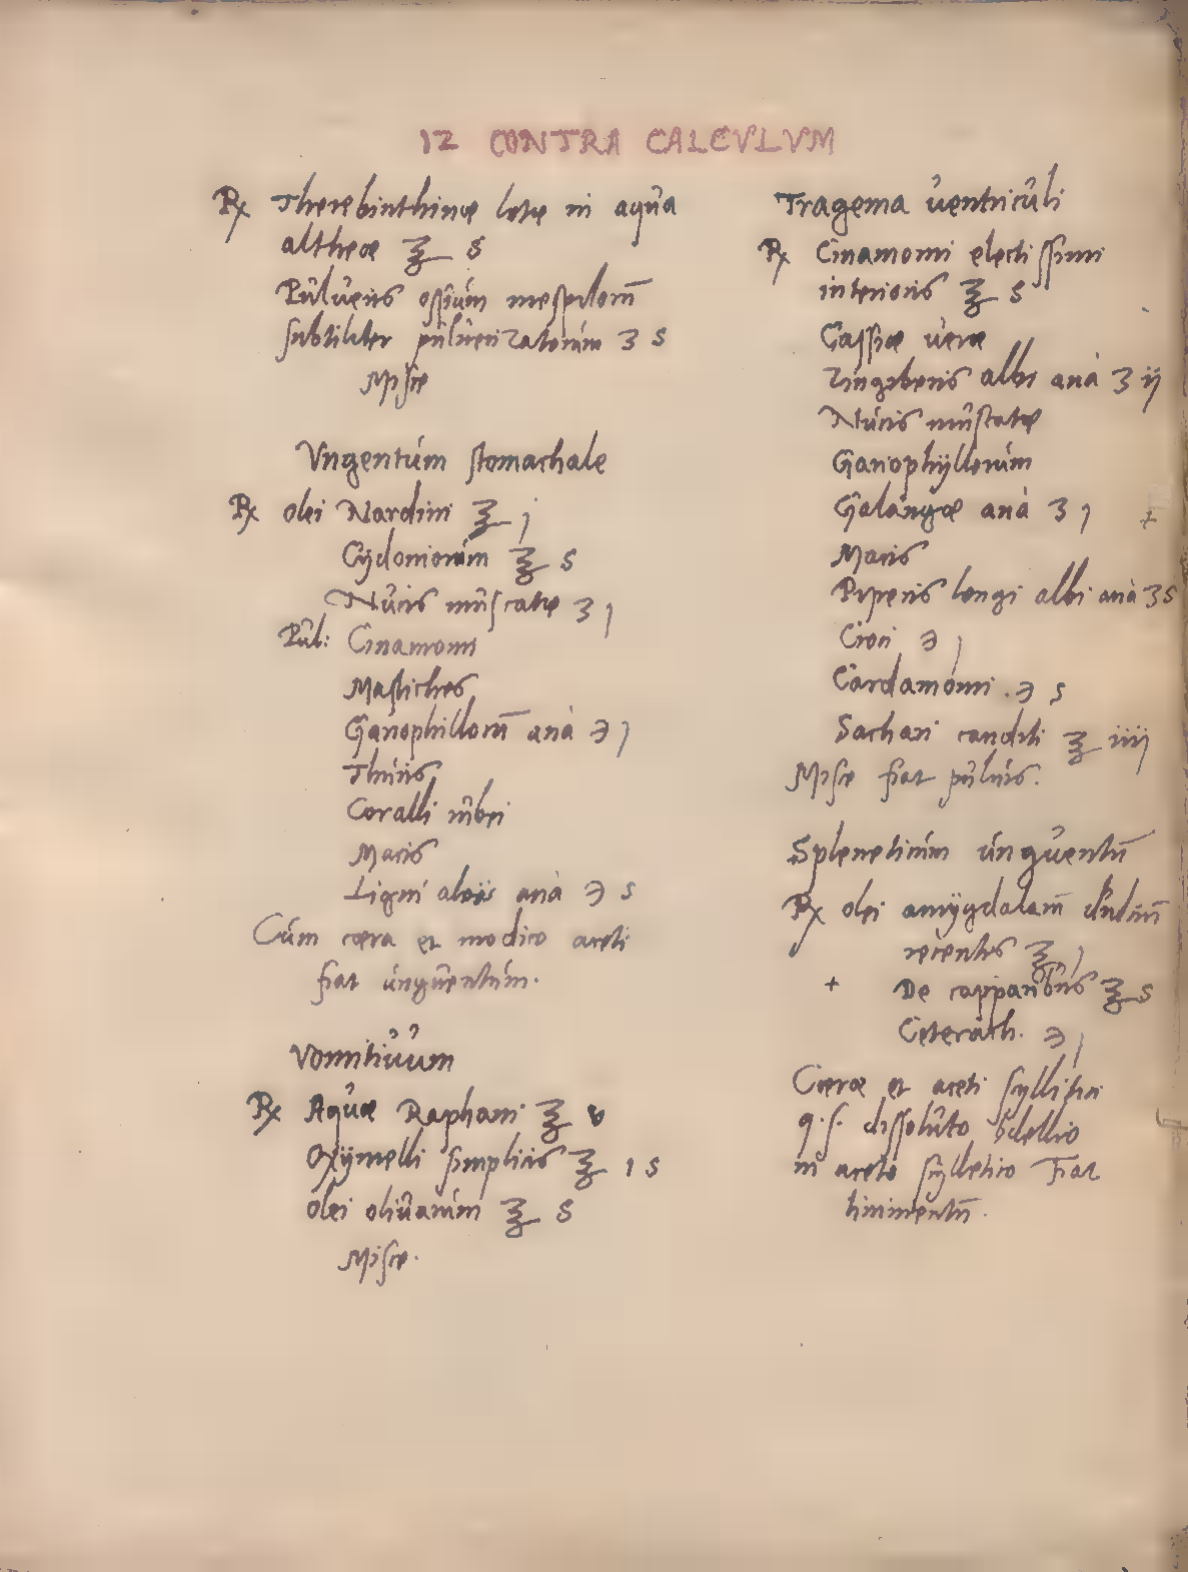 12 CONTRA CALCVLVM
℞ Therebinthinæ lotæ in aqua
altheæ ℥ s
Pulueris ossium mespilorũ
subtiliter puluerizatorum ʒ s
Misce
Vngentum stomachale
℞ olei Nardini ℥ j
Cydoniorum ℥ s
Nucis muscatæ ʒ j
Pul: Cinamomi
Mastiches
Gariophillorũ ana ℈ j
Thuris
Coralli rubei
Macis
Ligni aloës ana ℈ s
Cum cæra et modico aceti
fiat unguentum.
Vomitiuum
℞ Aquæ Raphani ℥ v
Oxymelli simplicis ℥ 1 s
olei oliuarum ℥ s
Misce.
Tragema uentriculi
℞ Cinamomi electissimi
interioris ℥ s
Cassiæ ueræ
Zingiberis albi ana ʒ ij
Nucis muscatæ
Gariophyllorum
Galangæ ana ʒ j +
Macis
Piperis longi albi ana ʒ s
Croci ℈ j
Cardamomi . ℈ s
Sachari canditi ℥ iiij
Misce fiat puluis.
Spleneticum unguentũ
℞ olei amygdalarũ dulciũ
recentis ℥ j
+ De capparibus ℥ s
Ceterach. ℈ j
Cæræ et aceti scyllitici
q.s. dissoluto bdellio
in aceto scylletico Fiat
linimentũ.